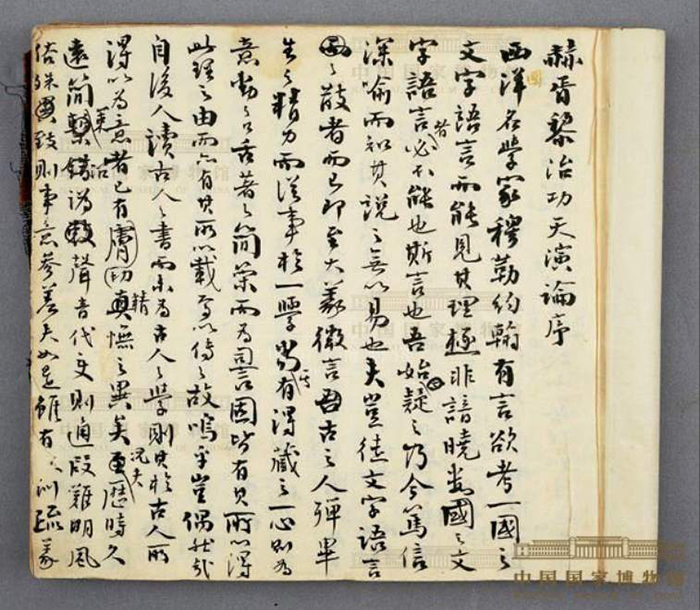 赫胥黎治功天演論序
西洋名學家穆勒約翰有言欲考一國之
文字語言而能見其理極非諳曉數國之文
字語言者必不能也斯言也吾始疑之乃今篤信
深喻而知其說之無以易也夫豈徒文字語言
之散者而已即至大義微言古之人殫畢
生之精力而從事於一學當其有得藏之一心則為
意動之口舌著之簡策而為詞固皆有其所以得
此理之由而亦有其所以載焉以傳之故嗚乎豈偶然哉
自後人讀古人之書而未為古人之學則其於古人所
得以為意者已有膚切精憮之異矣況夫歷時久
遠簡 聲音代變則通叚難明風
俗殊 則事意參差夫如是雖有 訓疏義
中国国家博物馆